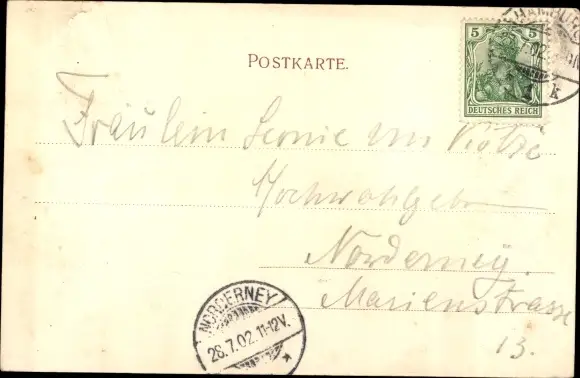 HAMBURG
5 5
DEUTSCHES REICH
1 k
POSTKARTE.
Fräulein Leonie von
Hochwohlgeb
Norderney.
Marienstrasse
13.
NORDERNEY
28.7.02.11-12V.
*